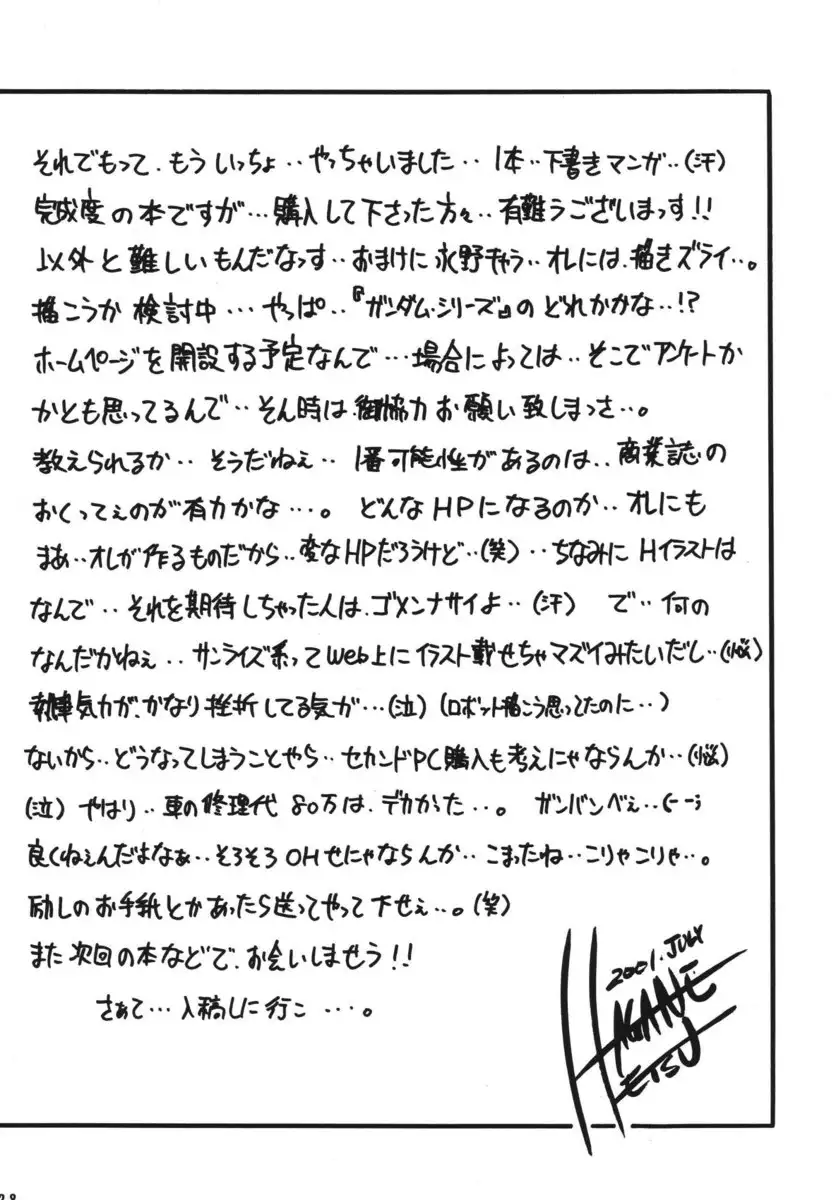 それでもって、もういっちょ‥やっちゃいました‥1本‥下書きマンガ‥(汗)
完成度の本ですが…購入して下さった方々‥有難うございまっす!!
以外と難しいもんだなっす‥おまけに永野キャラ‥オレには、描きズライ‥。
描こうか検討中…やっぱ‥『ガンダム・シリーズ』のどれかかな‥!?
ホームページを開設する予定なんで…場合によっては‥そこでアンケートか
かとも思ってるんで‥そん時は、御協力お願い致しまっさ‥。
教えられるか‥そうだねぇ‥1番可能性があるのは‥商業誌の
おくってぇのが有力かな…。どんなHPになるのか‥オレにも
まあ‥オレが作るものだから‥変なHPだろうけど‥(笑)‥ちなみにHイラストは
なんで‥それを期待しちゃった人は、ゴメンナサイよ‥(汗) で‥何の
なんだかねぇ‥サンライズ系ってWeb上にイラスト載せちゃマズイみたいだし‥(悩)
気力が、かなり挫折してる気が…(泣)(ロボット描こう思ってたのに‥)
ないから‥どうなってしまうことやら‥セカンドPC購入も考えにゃならんか‥(悩)
(泣)やはり‥車の修理代80万は、デカかった‥。ガンバンベぇ‥
良くねぇんだよなぁ‥そろそろOHせにゃならんか‥こまったね‥こりゃこりゃ‥。
励しのお手紙とかあったら送ってやって下せぇ‥。(笑)
また次回の本などで、お会いしませう!!
さぁて…入稿しに行こ…。
2001.JULY
HAGANE
TETSU
28